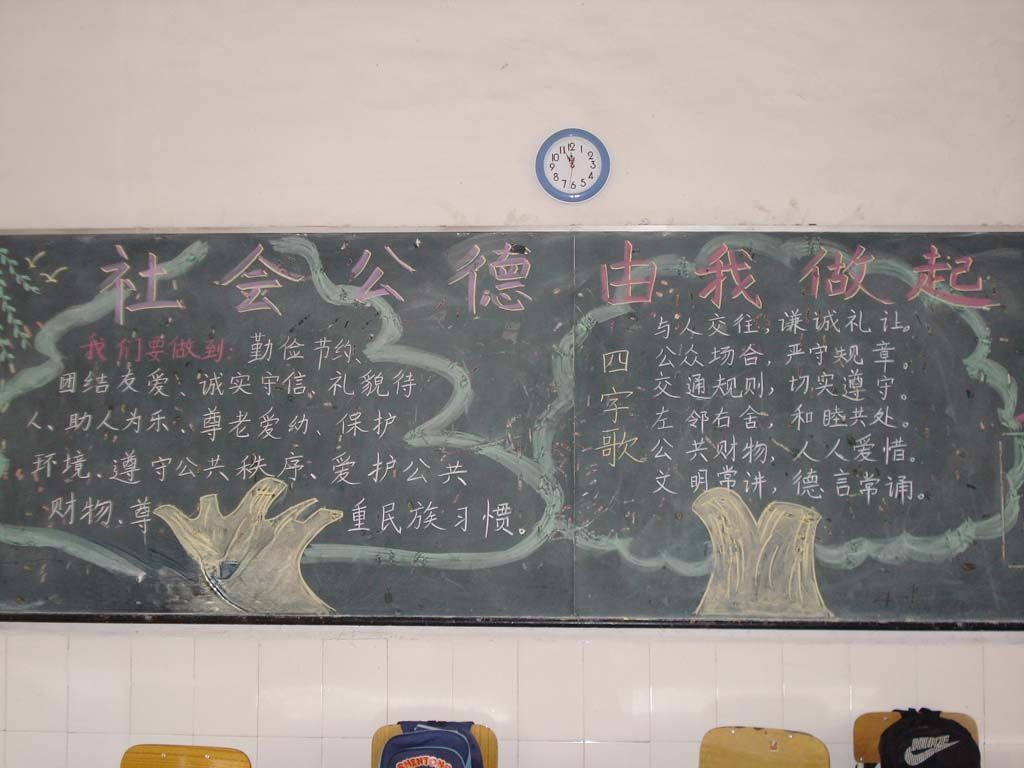 社会公德 由我做起
我们要做到:勤俭节约、
团结友爱、诚实守信、礼貌待
人、助人为乐、尊老爱幼、保护
环境、遵守公共秩序、爱护公共
财物、尊重民族习惯。
四字歌
与人交往,谦诚礼让。
公众场合,严守规章。
交通规则,切实遵守。
左邻右舍,和睦共处。
公共财物,人人爱惜。
文明常讲,德言常诵。
12
1
2
3
4
5
6
7
8
9
10
11
SHENTONG